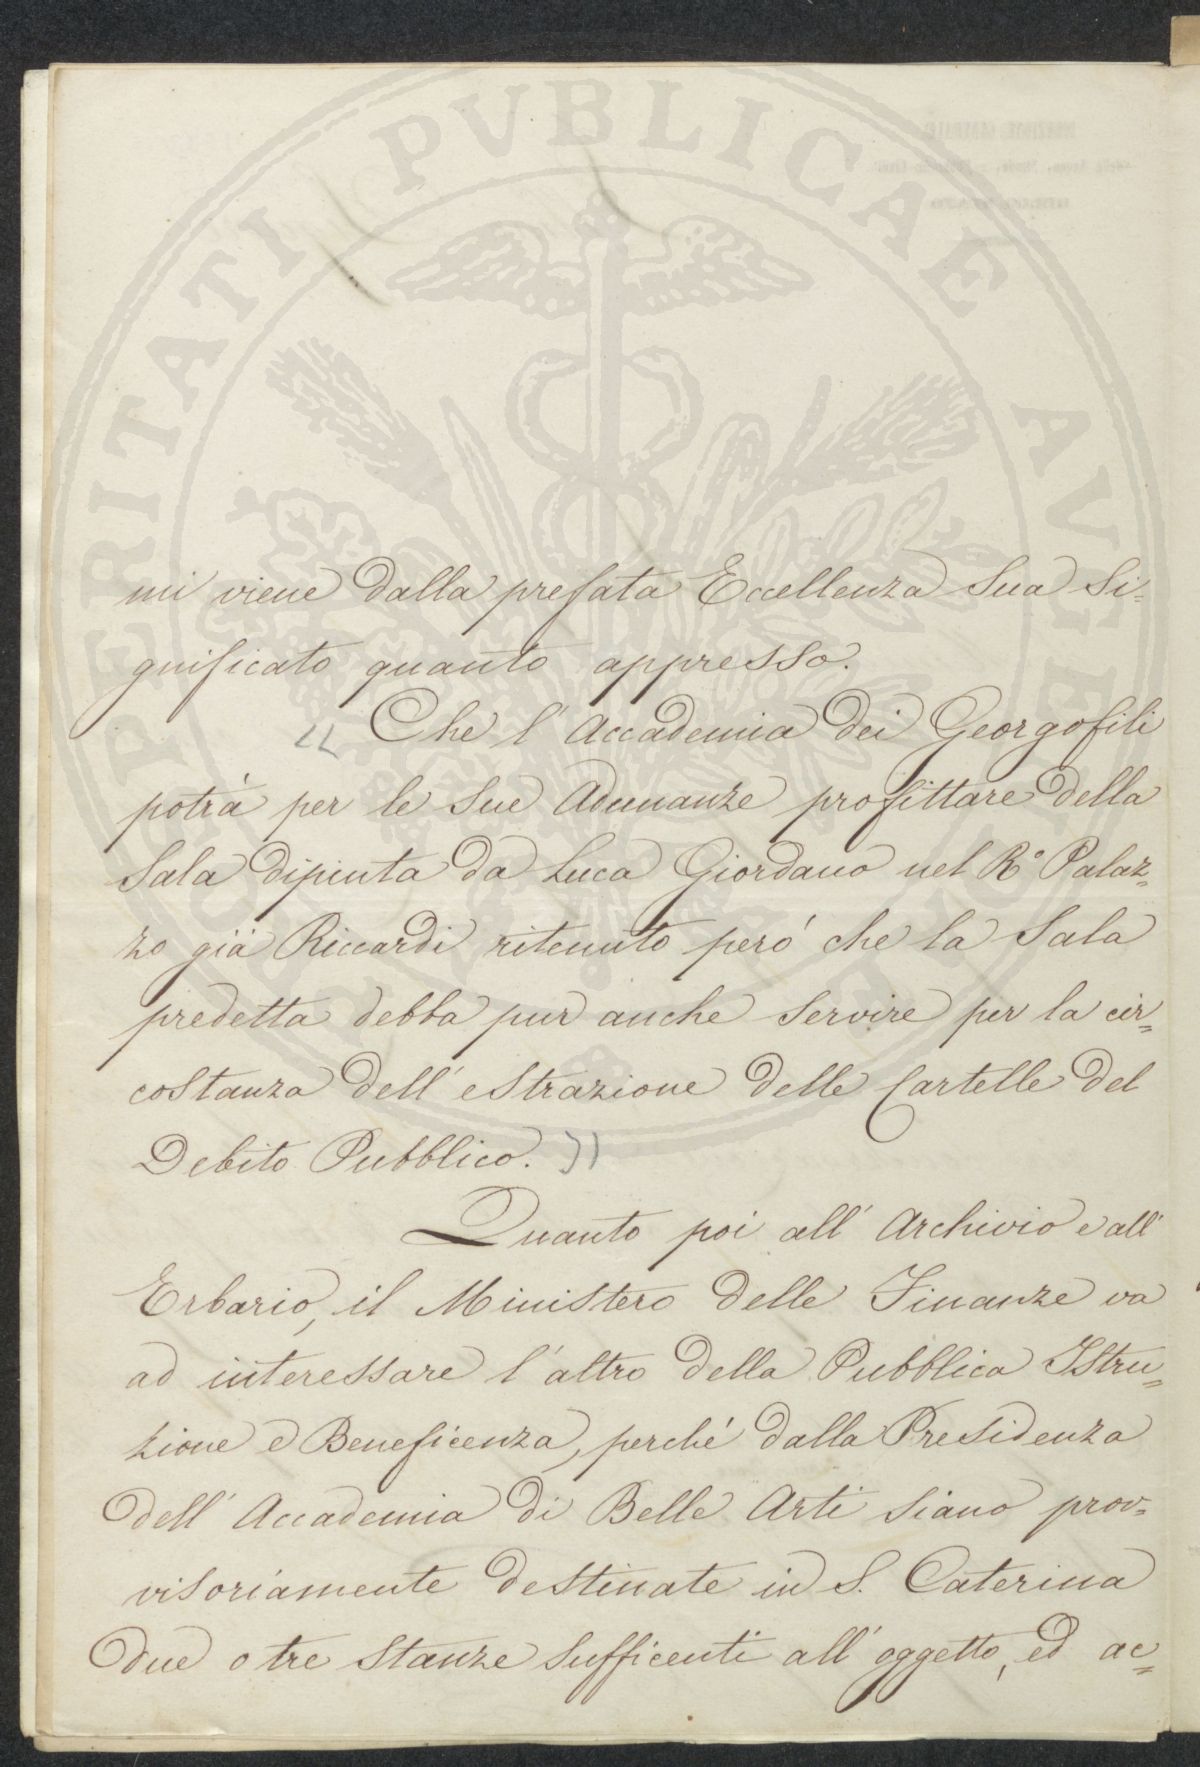 PROSPERITATI PUBLICAE AUGENDAE
mi viene dalla prefata Eccellenza Sua Si-
gnificato quanto appresso.
" Che l'Accademia dei Georgofili
potrà per le Sue Adunanze profittare della
Sala dipinta da Luca Giordano nel R.° Palaz=
zo già Riccardi ritenuto però che la Sala
predetta debba pur anche Servire per la cir=
costanza dell'estrazione delle Cartelle del
Debito Pubblico. "
Quanto poi all'Archivio e all'
Erbario, il Ministero delle Finanze va
ad interessare l'altro della Pubblica Istru=
zione e Beneficenza, perché dalla Presidenza
dell'Accademia di Belle Arti siano prov=
visoriamente destinate in S. Caterina
due o tre stanze sufficenti all'oggetto, ed ac=